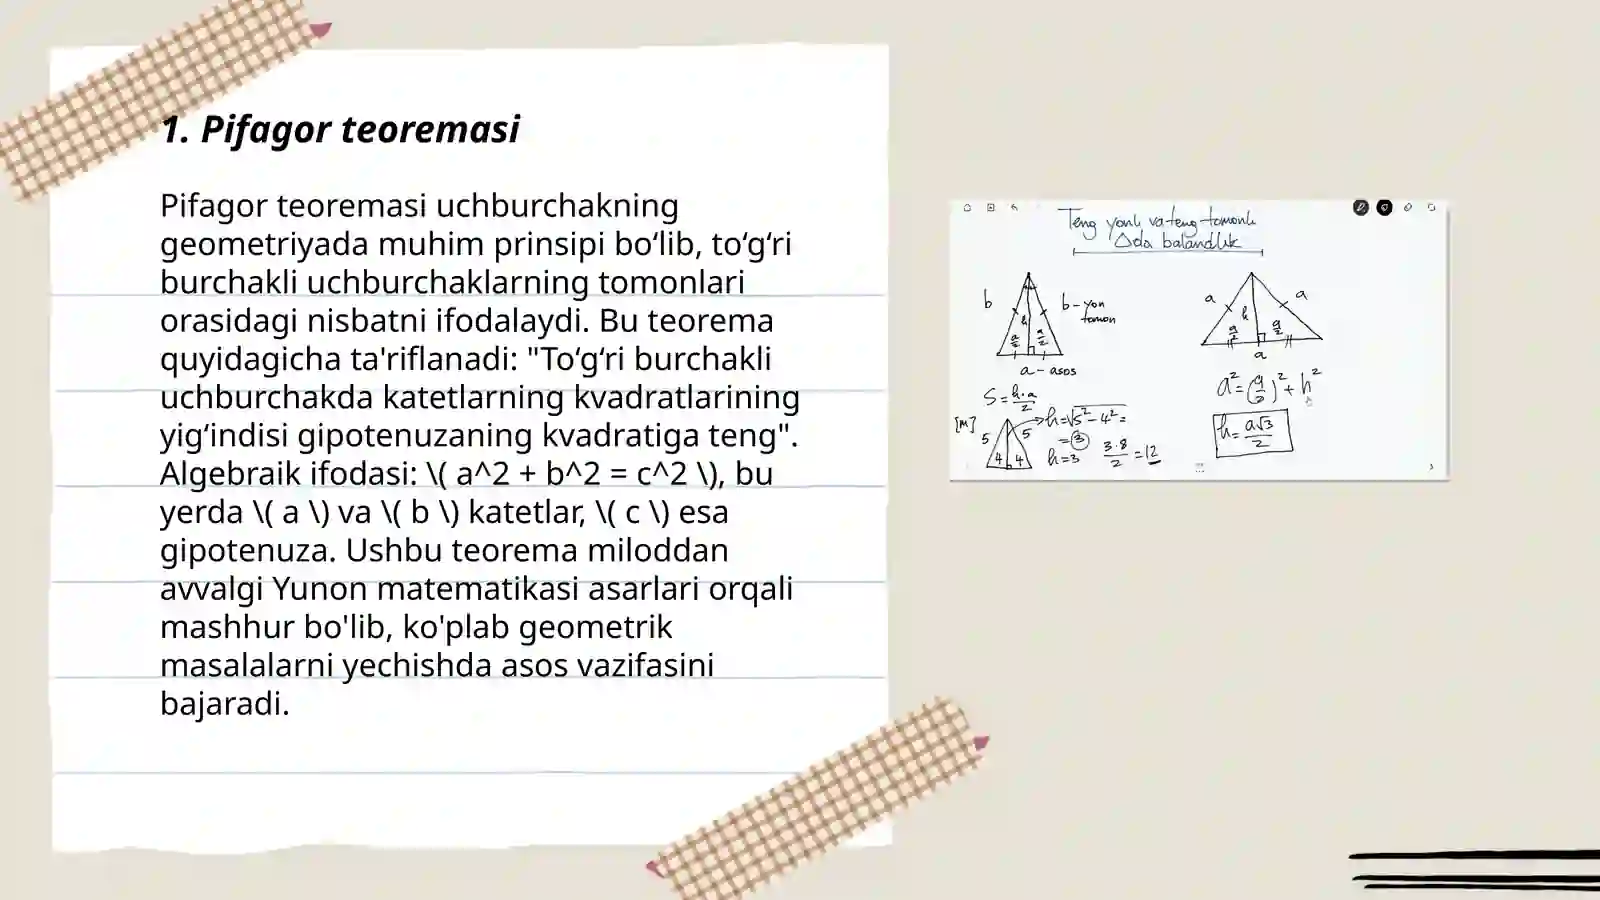 1. Pifagor teoremasi
Pifagor teoremasi uchburchakning
geometriyada muhim prinsipi bo‘lib, to‘g‘ri
burchakli uchburchaklarning tomonlari
orasidagi nisbatni ifodalaydi. Bu teorema
quyidagicha ta'riflanadi: "To‘g‘ri burchakli
uchburchakda katetlarning kvadratlarining
yig‘indisi gipotenuzaning kvadratiga teng".
Algebraik ifodasi: \( a^2 + b^2 = c^2 \), bu
yerda \( a \) va \( b \) katetlar, \( c \) esa
gipotenuza. Ushbu teorema miloddan
avvalgi Yunon matematikasi asarlari orqali
mashhur bo'lib, ko'plab geometrik
masalalarni yechishda asos vazifasini
bajaradi.
Teng yonli va teng tomonli
Δda balandlik
b
b - yon
tomon
h
a/2 a/2
a - asos
S = h·a/2
[M]
5 5
4 4
h = √5² - 4² =
= 3
h = 3
3·8/2 = 12
a a
h
a/2 a/2
a
a² = (a/2)² + h²
h = a√3/2